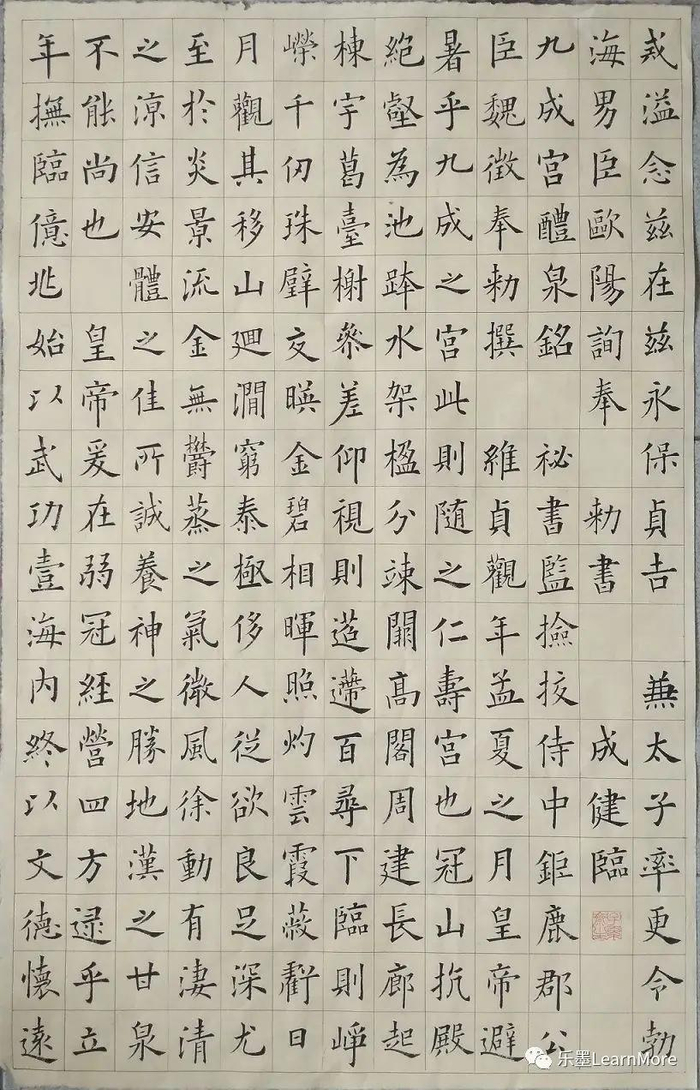 戎溢念茲在茲永保貞吉 兼太子率更令勃
海男臣歐陽詢奉 勅書 成健臨
九成宮醴泉銘 秘書監撿挍侍中鉅鹿郡公
臣魏徵奉勅撰 維貞觀年孟夏之月皇帝避
暑乎九成之宮此則随之仁壽宮也冠山抗殿
絕壑為池跨水架楹分竦闕高閣周建長廊起
棟宇葛臺榭叅差仰視則迢遰百尋下臨則崢
嶸千仞珠壁交暎金碧相暉照灼雲霞蔽虧日
月觀其移山迴澗窮泰極侈人從欲良足深尤
至於炎景流金無鬱蒸之氣微風徐動有淒清
之涼信安體之佳所誠養神之勝地漢之甘泉
不能尚也 皇帝爰在弱冠經營四方逮乎立
年撫臨億兆始以武功壹海內終以文德懷遠
乐墨LearnMore